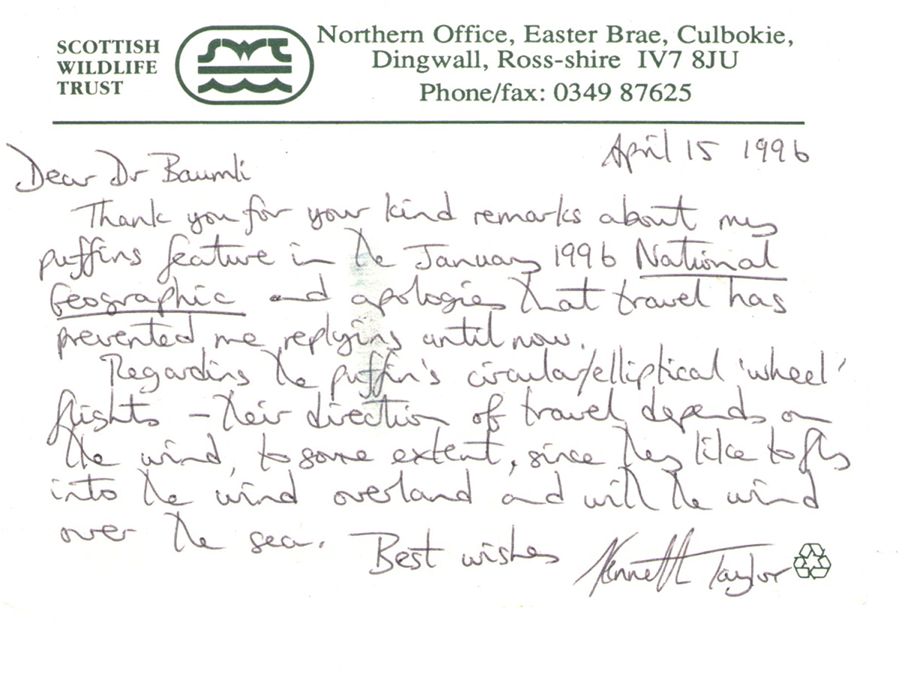 SCOTTISH
WILDLIFE
TRUST
SWT
Northern Office, Easter Brae, Culbokie,
Dingwall, Ross-shire IV7 8JU
Phone/fax: 0349 87625
April 15 1996
Dear Dr Baumli
Thank you for your kind remarks about my
puffins feature in the January 1996 National
Geographic and apologies that travel has
prevented me replying until now.
Regarding the puffin's circular/elliptical 'wheel'
flights – their direction of travel depends on
the wind, to some extent, since they like to fly
into the wind overland and with the wind
over the sea.
Best wishes
Kenneth Taylor